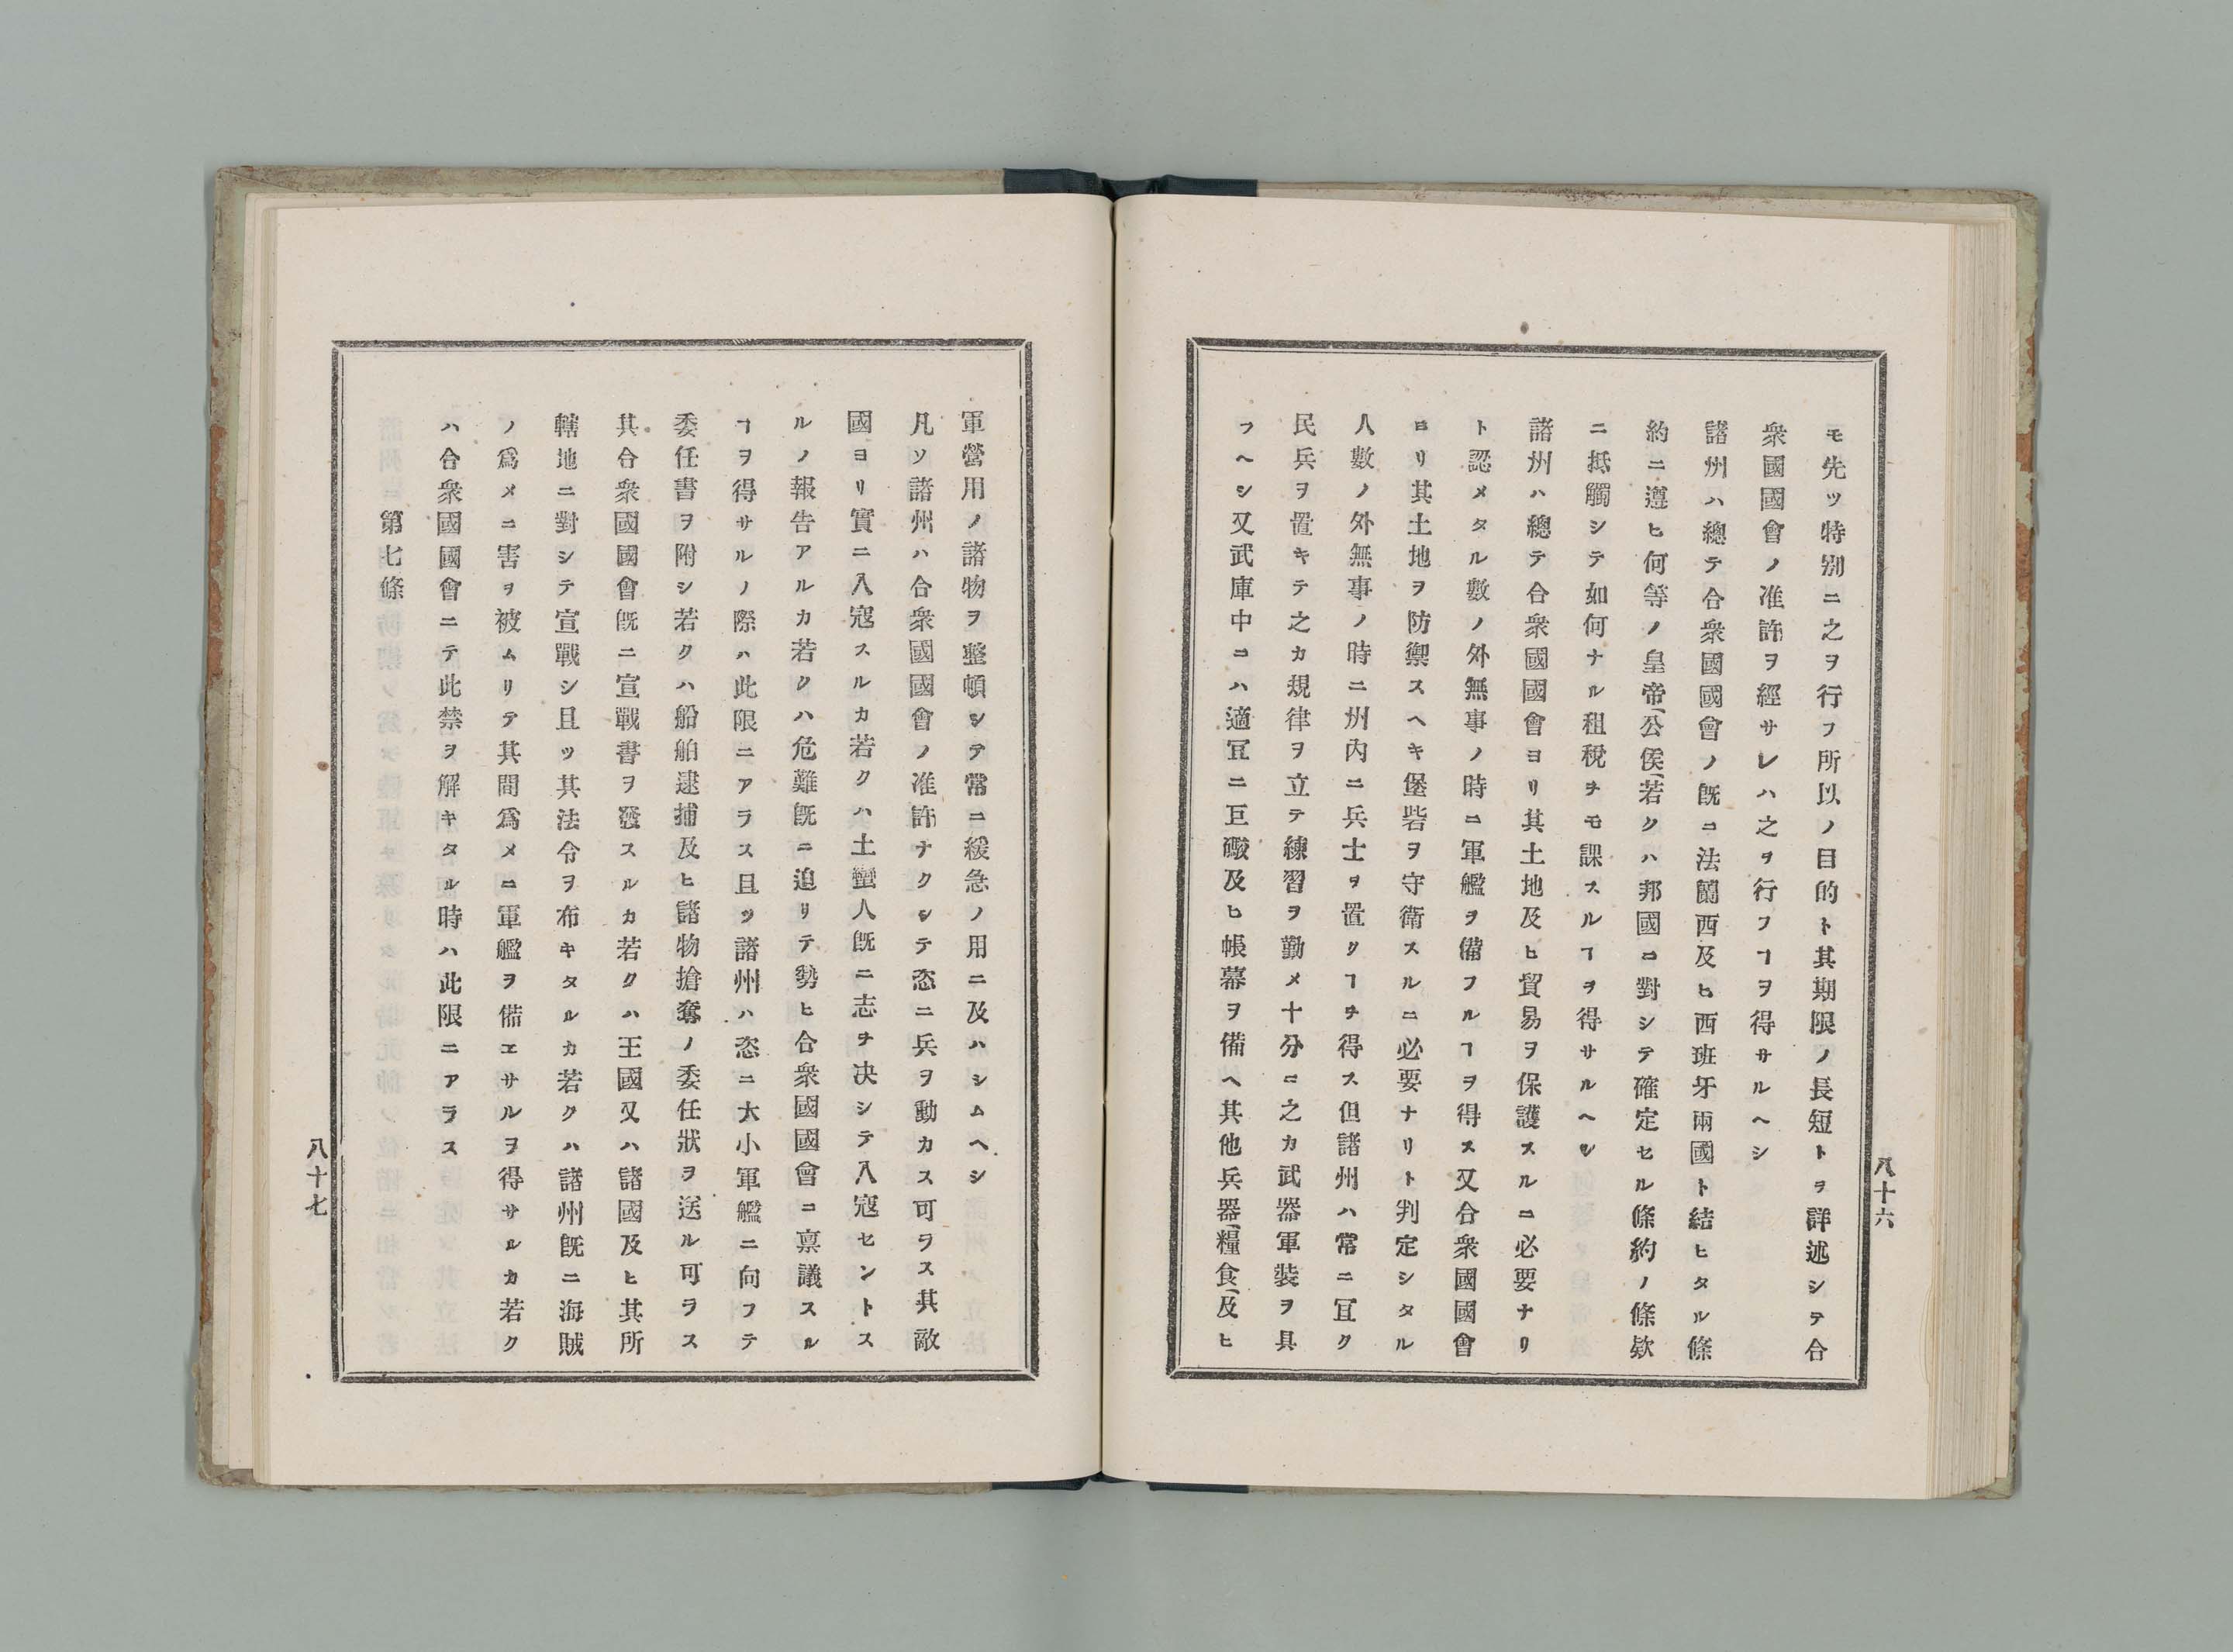 八十六
モ先ツ特別ニ之ヲ行フ所以ノ目的ト其期限ノ長短トヲ詳述シテ合
衆國國會ノ准許ヲ經サレハ之ヲ行フヿヲ得サルヘシ
諸州ハ總テ合衆國國會ノ既ニ法蘭西及ヒ西班牙兩國ト結ヒタル條
約ニ遵ヒ何等ノ皇帝(公侯(若クハ邦國ニ對シテ確定セル條約ノ條欵
ニ抵觸シテ如何ナル租稅ヲモ課スルヿヲ得サルヘシ
諸州ハ總テ合衆國國會ヨリ其土地及ヒ貿易ヲ保護スルニ必要ナリ
ト認メタル數ノ外無事ノ時ニ軍艦ヲ備フルヿヲ得ス又合衆國國會
ヨリ其土地ヲ防禦スヘキ堡砦ヲ守衛スルニ必要ナリト判定シタル
人數ノ外無事ノ時ニ州內ニ兵士ヲ置クヿヲ得ス但諸州ハ常ニ冝ク
民兵ヲ置キテ之カ規律ヲ立テ練習ヲ勤メ十分ニ之カ武器軍裝ヲ具
フヘシ又武庫中ニハ適冝ニ巨礮及ヒ帳幕ヲ備ヘ其他兵器(糧食(及ヒ
軍營用ノ諸物ヲ整頓シテ常ニ緩急ノ用ニ及ハシムヘシ
凡ソ諸州ハ合衆國國會ノ准許ナクシテ恣ニ兵ヲ動カス可ラス其敵
國ヨリ實ニ入寇スルカ若クハ土蠻人既ニ志ヲ決シテ入寇セントス
ルノ報告アルカ若クハ危難既ニ迫リテ勢ヒ合衆國國會ニ禀議スル
ヿヲ得サルノ際ハ此限ニアラス且ツ諸州ハ恣ニ大小軍艦ニ向フテ
委任書ヲ附シ若クハ船舶逮捕及ヒ諸物搶奪ノ委任狀ヲ送ル可ラス
其合衆國國會既ニ宣戰書ヲ發スルカ若クハ王國又ハ諸國及ヒ其所
轄地ニ對シテ宣戰シ且ツ其法令ヲ布キタルカ若クハ諸州既ニ海賊
ノ爲メニ害ヲ被ムリテ其間爲メニ軍艦ヲ備エサルヲ得サルカ若ク
ハ合衆國國會ニテ此禁ヲ解キタル時ハ此限ニアラス
第七條
八十七